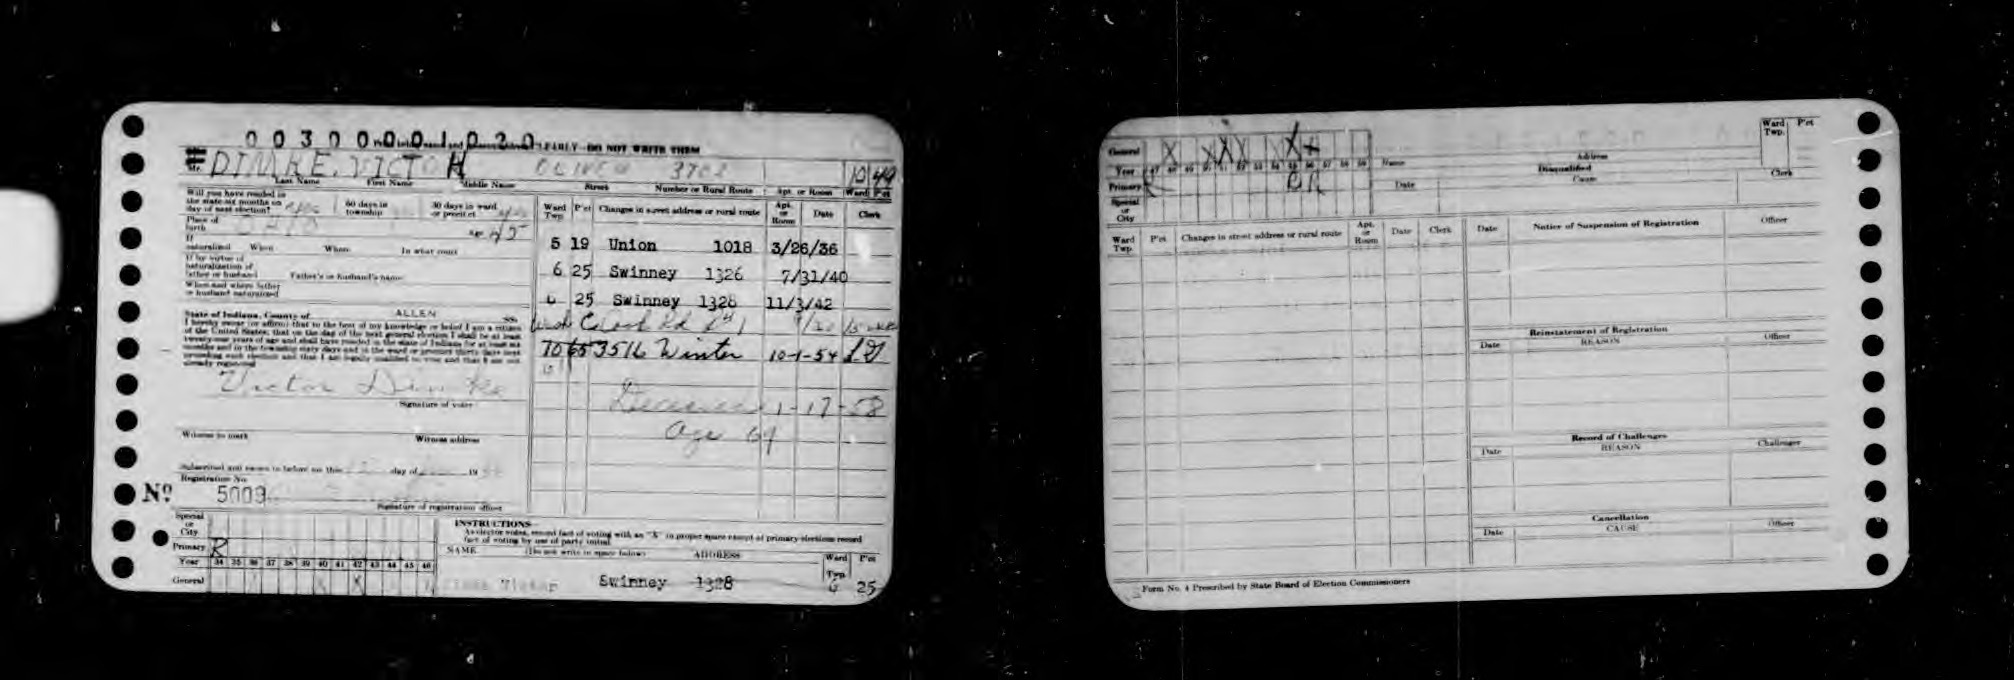 00300001020 EARLY - DO NOT WRITE THEM
Mr. DIMKE, VICTOR OLIVER 3702 10 49
Last Name First Name Middle Name Street Number or Rural Route Apt. or Room Ward P'ct
Will you have resided in the state six months on day of next election? 60 days in township 30 days in ward or precinct
Place of birth OHIO Age 45
If naturalized When Where In what court
If by virtue of naturalization of father or husband Father's or husband's name
When and where father or husband naturalized
State of Indiana, County of ALLEN SS:
I hereby swear (or affirm) that to the best of my knowledge or belief I am a citizen
of the United States; that on the day of the next general election I shall be at least
twenty-one years of age and shall have resided in the state of Indiana for at least six
months and in the township sixty days and in the ward or precinct thirty days next
preceding such election and that I am legally qualified to vote and that I am not
already registered
Victor Dimke
Signature of voter
Witness to mark Witness address
Subscribed and sworn to before me this day of 19
Registration No.
No. 5009
Signature of registration officer
Ward Twp. P'ct Changes in street address or rural route Apt. or Room Date Clerk
5 19 Union 1018 3/26/36
6 25 Swinney 1326 7/31/40
6 25 Swinney 1328 11/3/42
Wash Rd
10 65 3516 Winter 10-1-54
Deceased 1-17-58
Age 69
Special or City
Primary R
Year 34 35 36 37 38 39 40 41 42 43 44 45 46
General X X
INSTRUCTIONS
As elector votes, record fact of voting with an "X" in proper space except at primary elections record
fact of voting by use of party initial
NAME (Do not write in space below) ADDRESS Ward Twp. P'ct
Dimke Victor Swinney 1328 6 25
General X X X X X
Year 47 48 49 50 51 52 53 54 55 56 57 58 59
Primary R R R
Special or City
Name Address Ward Twp. P'ct
Disqualified
Date Cause Clerk
Ward Twp. P'ct Changes in street address or rural route Apt. or Room Date Clerk
Date Notice of Suspension of Registration Officer
Reinstatement of Registration
Date REASON Officer
Record of Challenges
Date REASON Challenger
Cancellation
Date CAUSE Officer
Form No. 4 Prescribed by State Board of Election Commissioners